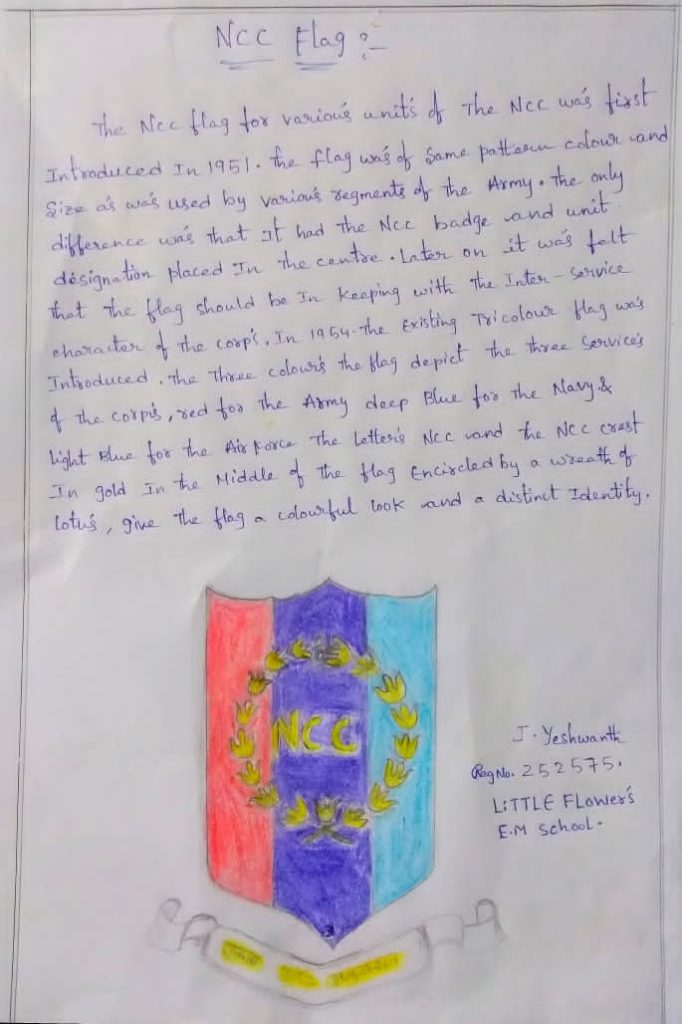 NCC Flag :-
The NCC flag for various units of The NCC was first
Introduced In 1951. The flag was of same pattern colour and
Size as was used by various regments of the Army. The only
difference was that It had the NCC badge and unit
designation placed In the centre. Later on it was felt
that the flag should be In keeping with the Inter-service
character of the corps, In 1954. the Existing Tricolour flag was
Introduced. The Three colours the flag depict the three services
of the corps, red for the Army deep Blue for the Navy &
Light Blue for the Air Force The Letters NCC and the NCC crest
In gold In the Middle of The flag Encircled by a wreath of
lotus, give the flag a colourful look and a distinct Identity.
NCC
J. Yeshwanth
Reg No. 252575.
LITTLE FLOWER'S
E.M School.